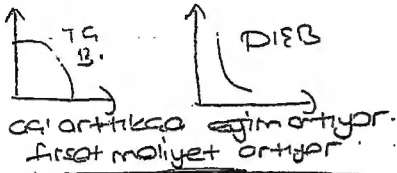 TG
B.
DIEB
arttıkça eğim artıyor.
fırsat maliyet artıyor